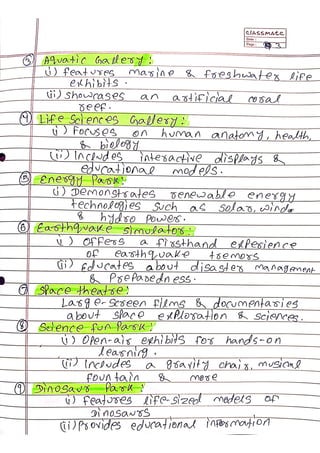 classmate
Date
Page 3
③ Aquatic Gallery:
(i) features marine & freshwater life
exhibits.
(ii) showcases an artificial coral
reef.
④ Life Sciences Gallery:
i) Focuses on human anatomy, health,
& biology
(ii) Includes interactive displays &
educational models.
⑤ Energy Park:
i) Demonstrates renewable energy
technologies such as solar, wind
& hydro power.
⑥ Earthquake simulator:
i) Offers a firsthand experience
of earthquake tremors
(ii) Educates about disaster management
& Preparedness.
⑦ Space theatre:
Large-Screen films & documentaries
about space exploration & sciences.
⑧ Science fun Park:
i) Open-air exhibits for hands-on
learning.
(ii) Includes a gravity chair, musical
fountain & more
⑨ Dinosaur Park:
i) features life-sized models of
Dinosaurs
(ii) Provides educational information